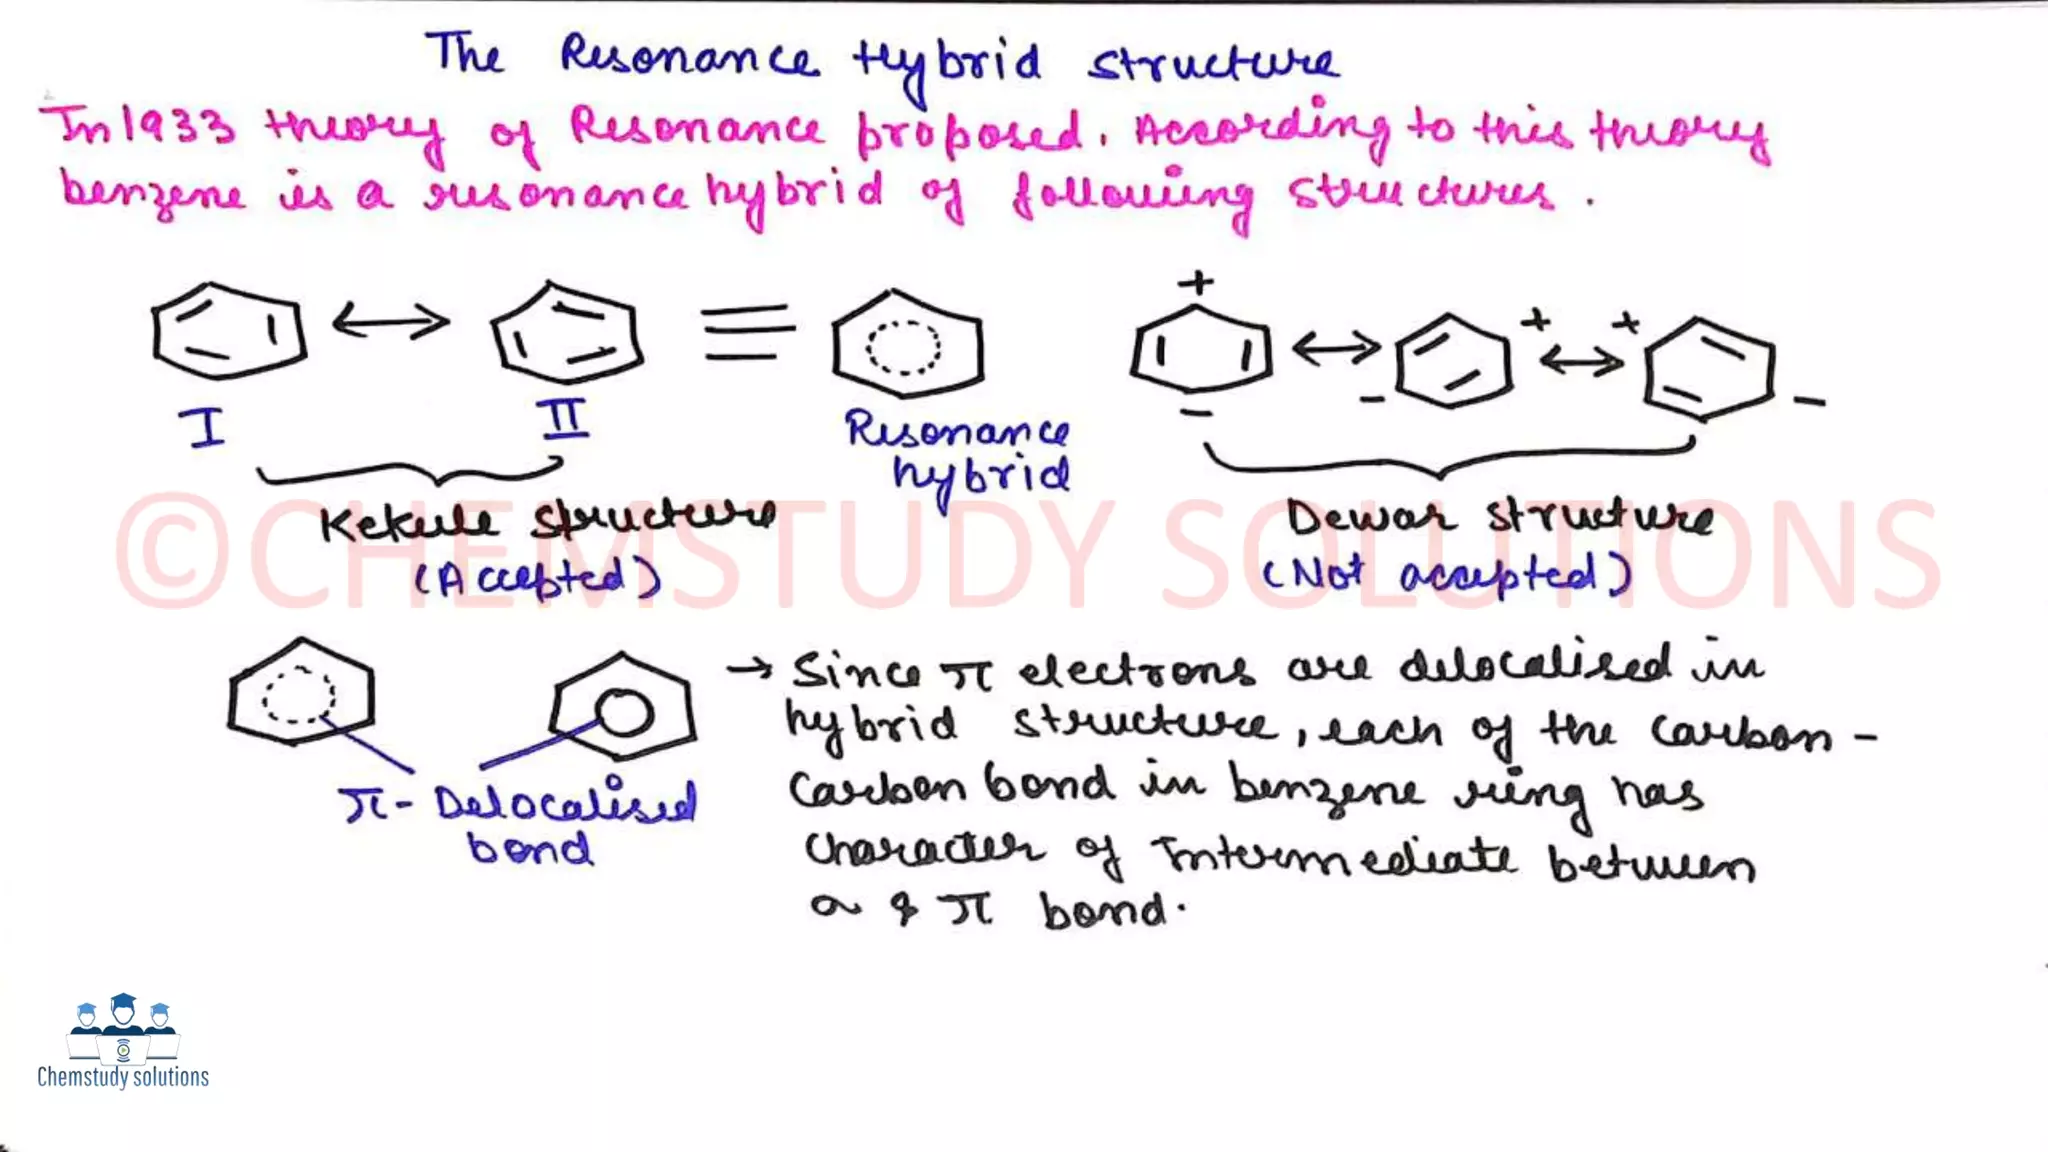 The Resonance Hybrid structure
In 1933 theory of Resonance proposed. According to this theory
benzene is a resonance hybrid of following structures.
+
+
+
I
II
-
-
-
Resonance
hybrid
Kekule structure
(Accepted)
Dewar structure
(Not accepted)
©CHEMSTUDY SOLUTIONS
→ Since π electrons are delocalised in
hybrid structure, each of the carbon -
carbon bond in benzene ring has
character of Intermediate between
σ & π bond.
π- Delocalised
bond
Chemstudy solutions